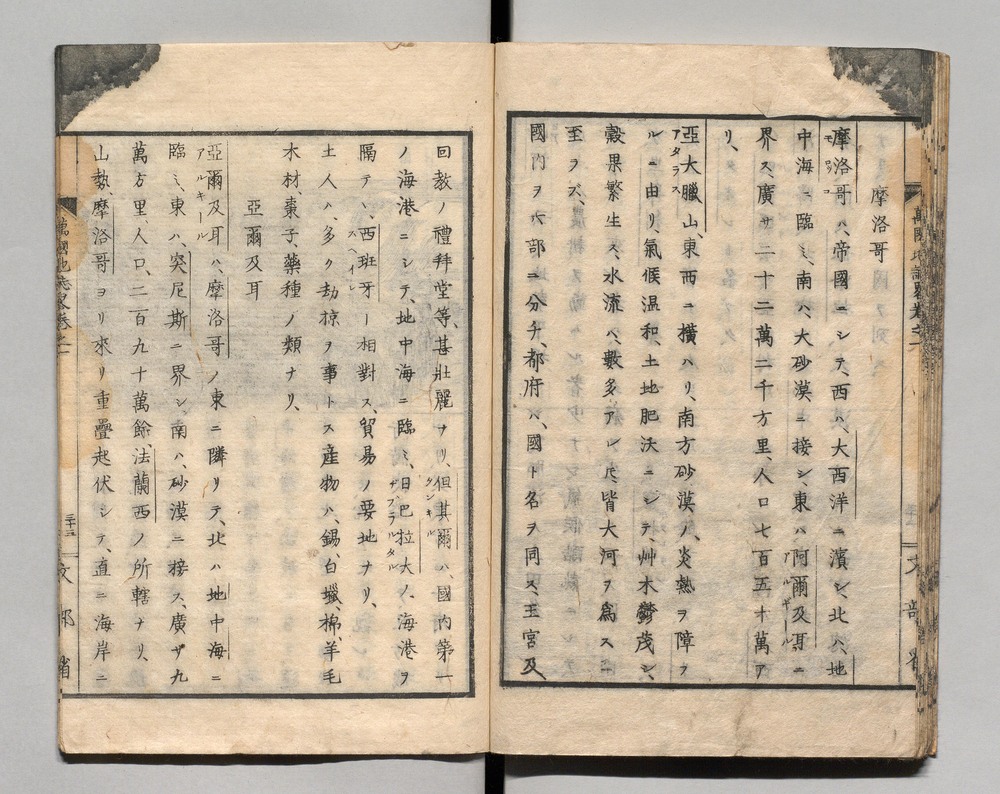 摩洛哥
摩洛哥ハ、帝國ニシテ、西ハ、大西洋ニ濱シ、北ハ、地
モロッコ
中海ニ臨ミ、南ハ、大砂漠ニ接シ、東ハ、阿爾及耳ニ
アルギール
界ス、廣サ二十二萬二千方里、人口七百五十萬ア
リ、
亞大臘山、東西ニ横ハリ、南方砂漠ノ、炎熱ヲ障フ
アタラス
ルニ由リ、氣候温和、土地肥沃ニシテ、艸木欝茂シ、
穀果繁生ス、水流ハ、數多アレ𪜈、皆大河ヲ爲スニ
至ラズ、
國内ヲ六部ニ分チ、都府ハ、國ト名ヲ同ス、王宮及
回教ノ禮拜堂等、甚壯麗ナリ、但其爾ハ、國内第一
タンキル
ノ海港ニシテ、地中海ニ臨ミ、日巴拉大ノ、海港ヲ
ザブラルタル
隔テヽ、西班牙ト相對ス、貿易ノ要地ナリ、
スペイン
土人ハ、多ク劫掠ヲ事トス産物ハ、錫、白蠟、棉、羊毛
木材、棗子、藥種ノ類ナリ、
亞爾及耳
亞爾及耳ハ、摩洛哥ノ東ニ隣リテ、北ハ地中海ニ
アルキール
臨ミ、東ハ、突尼斯ニ界シ、南ハ、砂漠ニ接ス、廣サ九
萬方里、人口、二百九十萬餘、法蘭西ノ所轄ナリ、
山勢、摩洛哥ヨリ來リ重疊起伏シテ、直ニ海岸ニ
萬國地誌畧卷之二
三十三
文部省